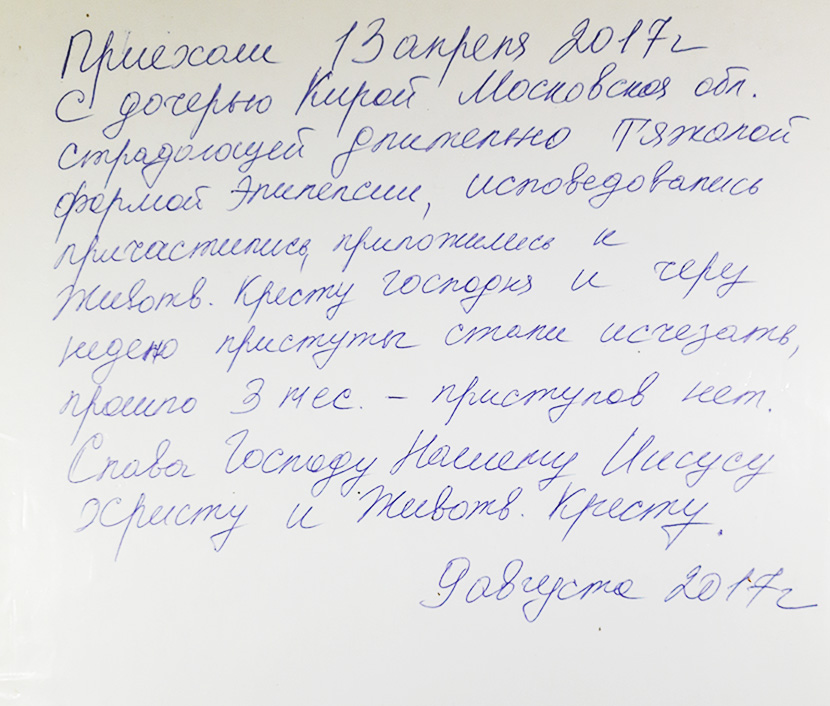 Приехали 13 апреля 2017г
С дочерью Кирой Московская обл.
страдающей длительно тяжолой
формой Эпилепсии, исповедовались
причастились, приложились к
Животв. Кресту Господня и через
неделю приступы стали исчезать,
прошло 3 мес. – приступов нет.
Слава Господу Нашему Иисусу
Христу и Животв. Кресту.
9 августа 2017г